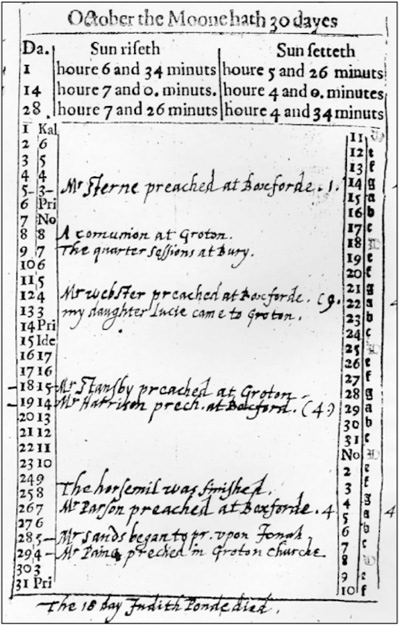 October the Moone hath 30 dayes
Da. Sun riseth Sun setteth
1 houre 6 and 34 minuts houre 5 and 26 minuts
14 houre 7 and 0. minuts. houre 4 and 0. minutes
28. houre 7 and 26 minuts houre 4 and 34 minuts
1 Kal 11
2 6 12 e
3 5 13 f
4 4 14 g
5 3 Mr Sterne preached at Boxforde. 1. 15 a
6 Pri 16 b
7 No 17 c
8 8 A comunion at Groton. 18
9 7 The quarter sessions at Bury. 19 e
10 6 20 f
11 5 21 g
12 4 Mr Webster preached at Boxforde. (9. 22 a
13 3 my daughter Lucie came to Groton. 23 b
14 Pri 24 c
15 Ide 25
16 17 26 e
17 16 27 f
18 15 Mr Stansby preached at Groton 28 g
19 14 Mr Harrison prech. at Boxford. (4) 29 a
20 13 30 b
21 12 31 c
22 11 No
23 10 2 e
24 9 3 f
25 8 The horsemil was finished. 4 g
26 7 Mr Parson preached at Boxforde. 4 5 a 4
27 6 6 b
28 5 Mr Sands began to pr. upon Jonah 7 c
29 4 Mr Paine preched in Groton churche. 8
30 3 9 e
31 Pri 10 f
The 18 day Judith Ponde died.